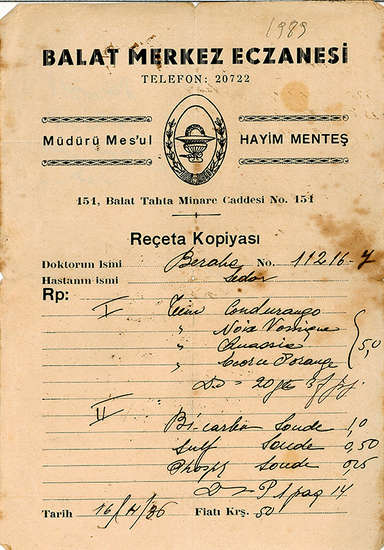 1989
BALAT MERKEZ ECZANESİ
TELEFON: 20722
Müdürü Mes'ul HAYİM MENTEŞ
151, Balat Tahta Minare Caddesi No. 151
Reçeta Kopiyası
Doktorun Ismi Beraha No. 11216-7
Hastanın ismi
Rp:
I Condurango
" Noix Vomique
"
" Ecorce D'orange 5,0
20 gtt
II Bicarbon Soude 1,0
Sulf Soude 0,50
Phosph Soude
1 paq 14
Tarih 16/ /36 Fiatı Krş. 50